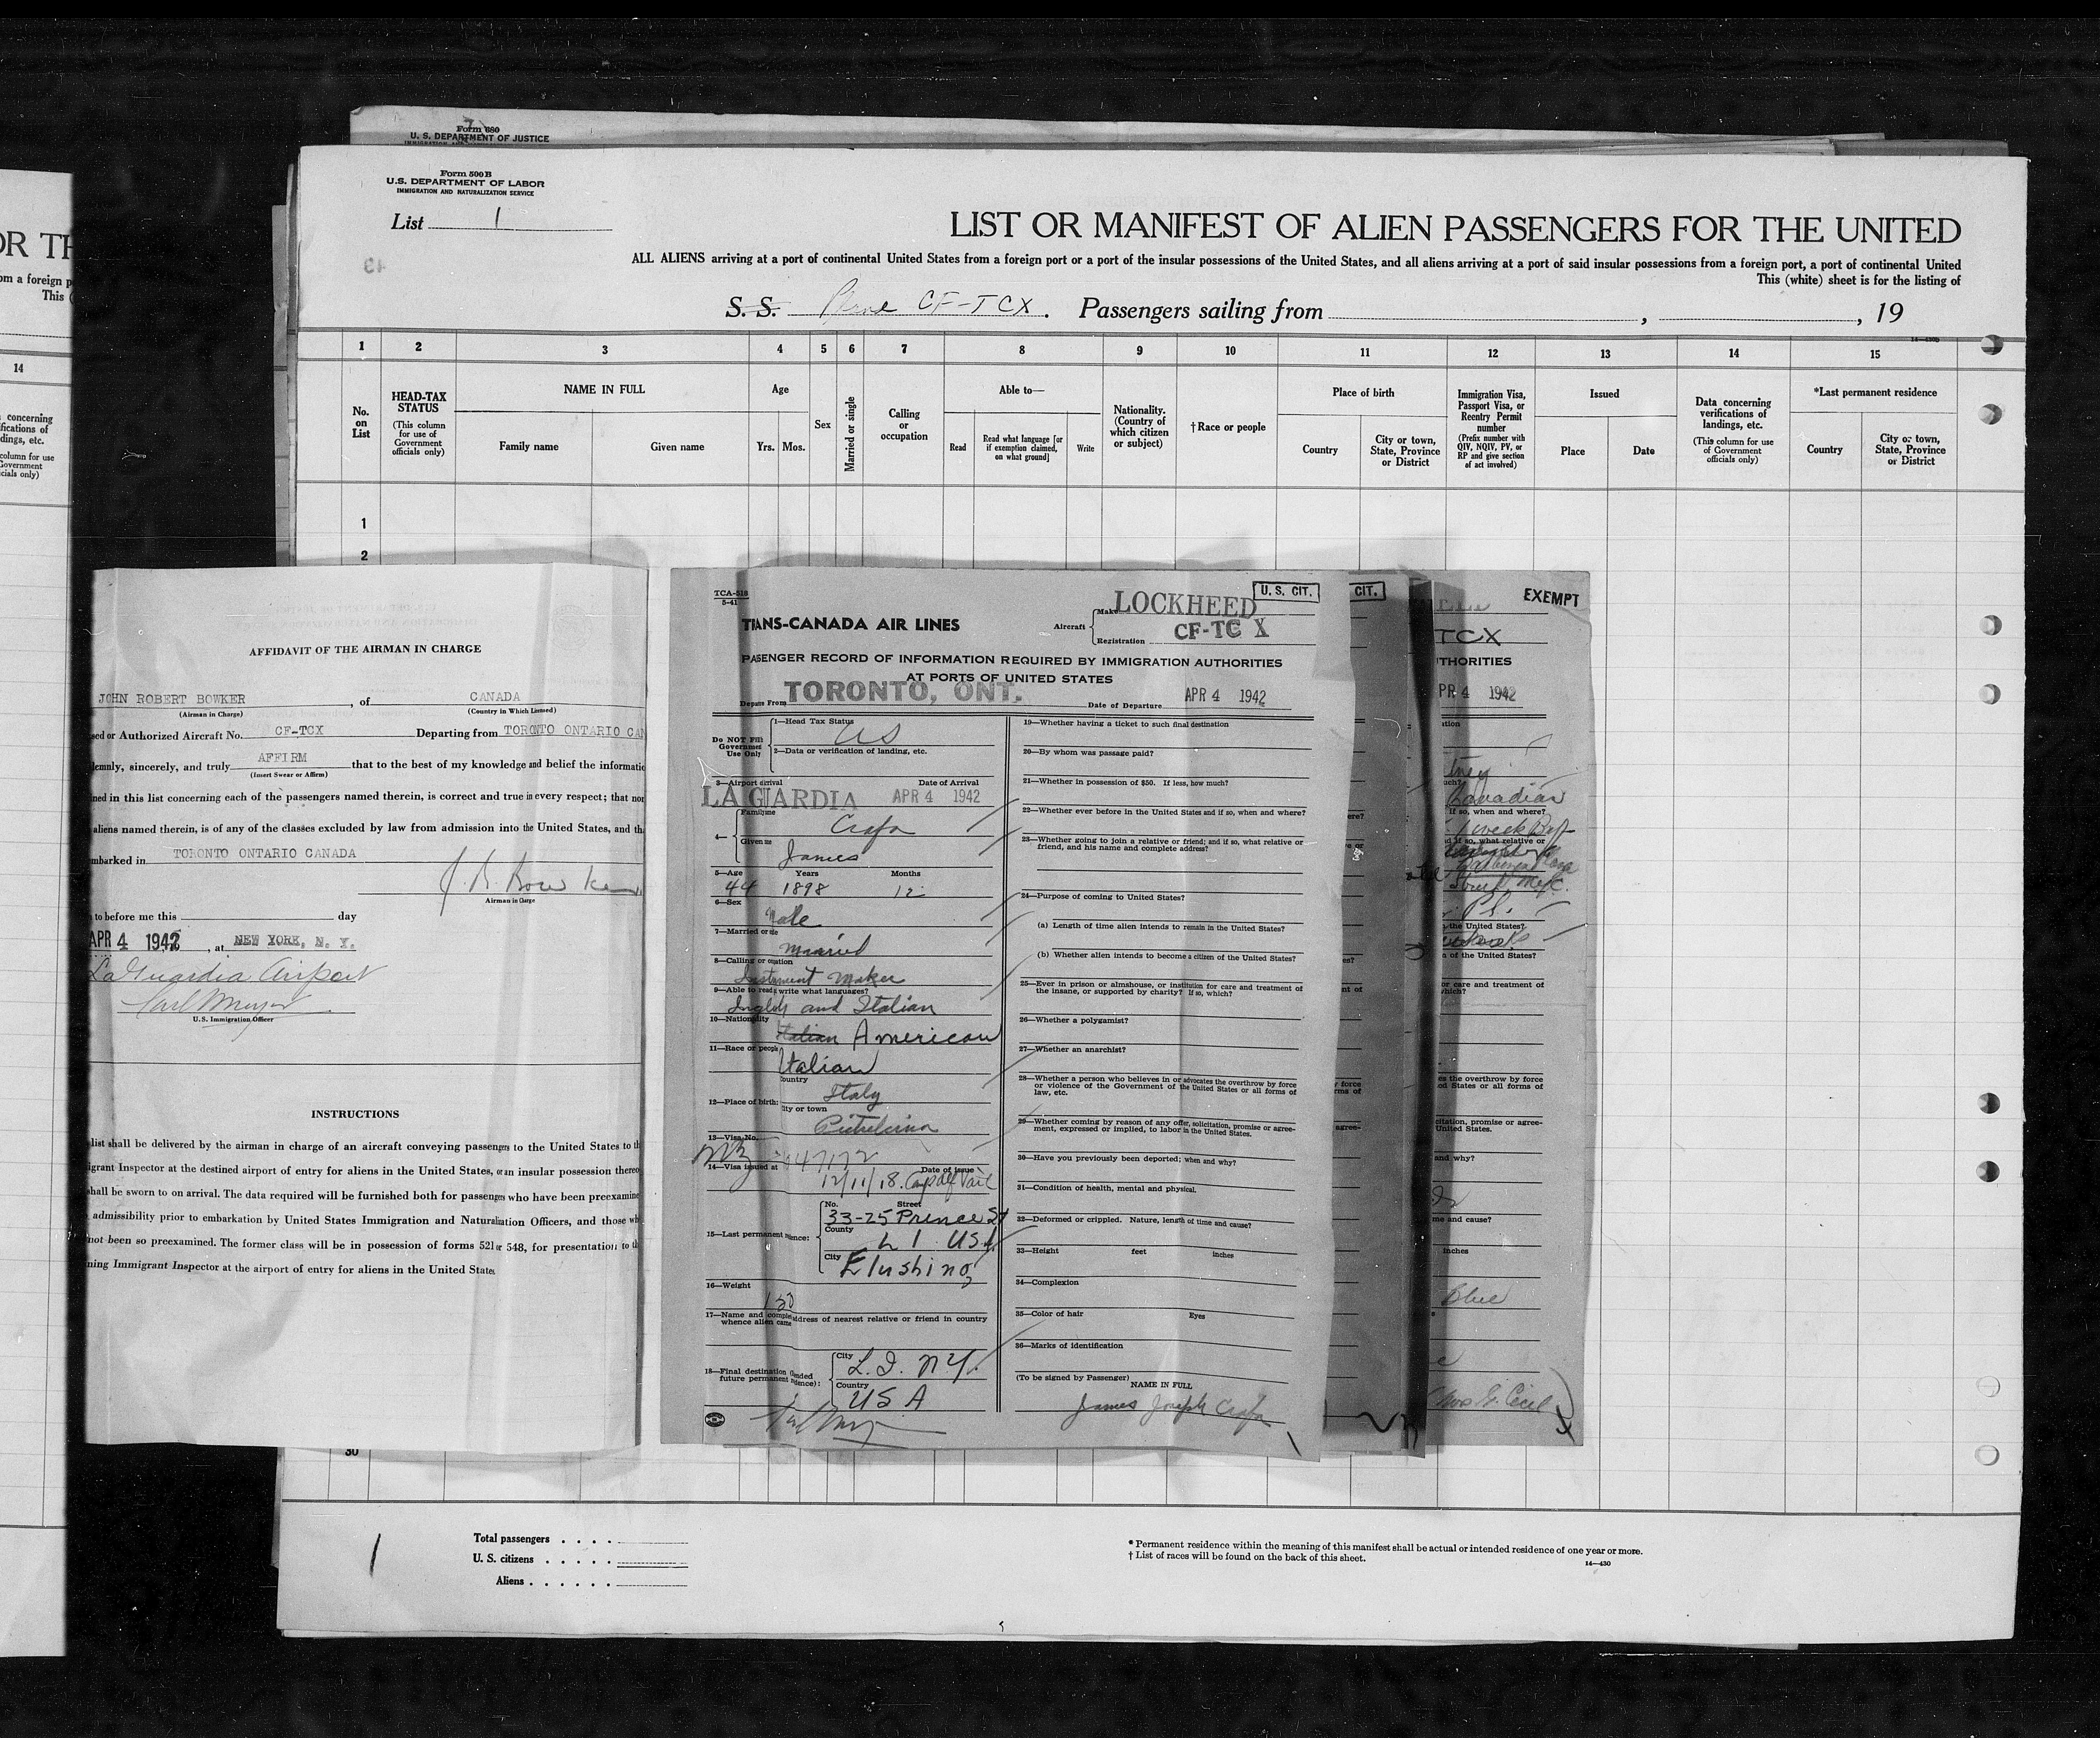 Form 680
U. S. DEPARTMENT OF JUSTICE
Form 500 B
U.S. DEPARTMENT OF LABOR
IMMIGRATION AND NATURALIZATION SERVICE
List 1
LIST OR MANIFEST OF ALIEN PASSENGERS FOR THE UNITED
ALL ALIENS arriving at a port of continental United States from a foreign port or a port of the insular possessions of the United States, and all aliens arriving at a port of said insular possessions from a foreign port, a port of continental United
This (white) sheet is for the listing of
S. S. Plane CF-TCX. Passengers sailing from , , 19
1 2 3 4 5 6 7 8 9 10 11 12 13 14 15
No. on List
HEAD-TAX STATUS
(This column for use of Government officials only)
NAME IN FULL
Family name
Given name
Age
Yrs. Mos.
Sex
Married or single
Calling or occupation
Able to—
Read
Read what language [or if exemption claimed, on what ground]
Write
Nationality. (Country of which citizen or subject)
†Race or people
Place of birth
Country
City or town, State, Province or District
Immigration Visa, Passport Visa, or Reentry Permit number
(Prefix number with QIV, NQIV, PV, or RP and give section of act involved)
Issued
Place
Date
Data concerning verifications of landings, etc.
(This column for use of Government officials only)
*Last permanent residence
Country
City or town, State, Province or District
1
2
AFFIDAVIT OF THE AIRMAN IN CHARGE
JOHN ROBERT BOWKER , of CANADA
(Airman in Charge) (Country in Which Licensed)
sed or Authorized Aircraft No. CF-TCX Departing from TORONTO ONTARIO CAN
lemnly, sincerely, and truly AFFIRM that to the best of my knowledge and belief the informatio
(Insert Swear or Affirm)
ned in this list concerning each of the passengers named therein, is correct and true in every respect; that non
aliens named therein, is of any of the classes excluded by law from admission into the United States, and th
mbarked in TORONTO ONTARIO CANADA
J. R. Bowker
Airman in Charge
to before me this day
APR 4 1942 , at NEW YORK, N. Y.
LaGuardia Airport
U.S. Immigration Officer
INSTRUCTIONS
list shall be delivered by the airman in charge of an aircraft conveying passengers to the United States to th
igrant Inspector at the destined airport of entry for aliens in the United States, or an insular possession thereo
shall be sworn to on arrival. The data required will be furnished both for passengers who have been preexamine
admissibility prior to embarkation by United States Immigration and Naturalization Officers, and those wh
not been so preexamined. The former class will be in possession of forms 521 or 548, for presentation to th
ning Immigrant Inspector at the airport of entry for aliens in the United States
TCA-518
5-41
U. S. CIT.
TRANS-CANADA AIR LINES
Aircraft
Make LOCKHEED
Registration CF-TC X
PASENGER RECORD OF INFORMATION REQUIRED BY IMMIGRATION AUTHORITIES
AT PORTS OF UNITED STATES
Depart From TORONTO, ONT. Date of Departure APR 4 1942
Do NOT Fill Government Use Only
1—Head Tax Status
2—Data or verification of landing, etc.
3—Airport arrival Date of Arrival
LA GUARDIA APR 4 1942
4—
Crafa
James
5—Age Years Months
44 1898 12
6—Sex
Male
Married
Instrument Maker
9—Able to read, write what languages?
and Italian
10—Nationality
Italian American
11—Race or people
Italian
12—Place of birth:
Country
Italy
City or town
13—Visa No.
14—Visa issued at Date of Issue
12/11/18
15—Last permanent
No. Street
33-25 Prence St
County
L I USA
City
Flushing
16—Weight
150
17—Name and comple address of nearest relative or friend in country
whence alien came
18—Final destination
future permanent
City
L.I. N.Y.
Country
USA
19—Whether having a ticket to such final destination
20—By whom was passage paid?
21—Whether in possession of $50. If less, how much?
22—Whether ever before in the United States and if so, when and where?
23—Whether going to join a relative or friend; and if so, what relative or
friend, and his name and complete address?
24—Purpose of coming to United States?
(a) Length of time alien intends to remain in the United States?
(b) Whether alien intends to become a citizen of the United States?
25—Ever in prison or almshouse, or institution for care and treatment of
the insane, or supported by charity? If so, which?
26—Whether a polygamist?
27—Whether an anarchist?
28—Whether a person who believes in or advocates the overthrow by force
or violence of the Government of the United States or all forms of
law, etc.
29—Whether coming by reason of any offer, solicitation, promise or agree-
ment, expressed or implied, to labor in the United States.
30—Have you previously been deported; when and why?
31—Condition of health, mental and physical.
32—Deformed or crippled. Nature, length of time and cause?
33—Height feet inches
34—Complexion
35—Color of hair Eyes
36—Marks of identification
(To be signed by Passenger)
NAME IN FULL
James Joseph Crafa
CIT.
EXEMPT
TCX
THORITIES
PR 4 1942
Canadian
if so, when and where?
1 week
if so, what relative or
the United States?
of the United States?
or care and treatment of
es the overthrow by force
ed States or all forms of
citation, promise or agree-
United States.
and why?
me and cause?
inches
Blue
Cecil
30
1
Total passengers
U. S. citizens
Aliens
* Permanent residence within the meaning of this manifest shall be actual or intended residence of one year or more.
† List of races will be found on the back of this sheet.
14—430